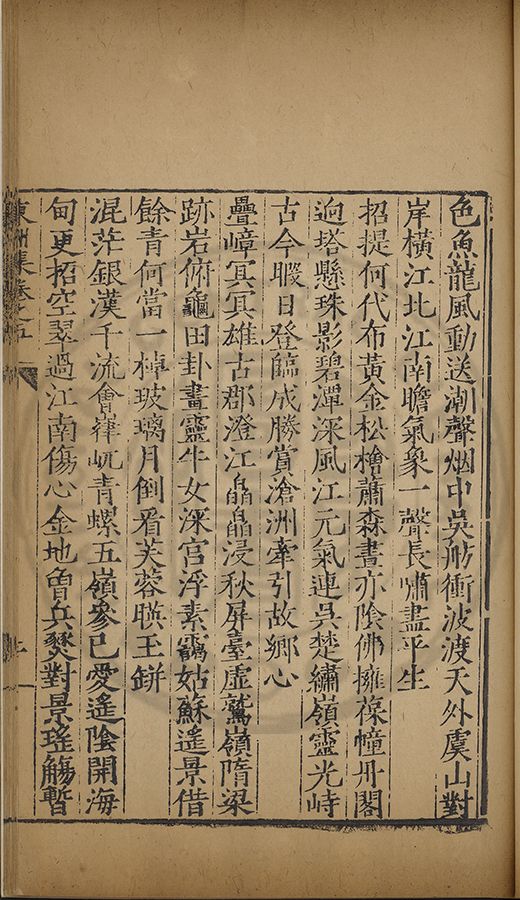 色魚龍風動送潮聲烟中吳舫衝波渡天外虞山對
岸橫江北江南瞻氣象一聲長嘯盡平生
招提何代布黃金松檜蕭森晝亦陰佛擁葆幢丹閣
迥塔懸珠影碧潭深風江元氣連吳楚繡嶺靈光峙
古今暇日登臨成勝賞滄洲牽引故鄉心
疊嶂冥冥雄古郡澄江皛皛浸秋屏臺虛鷲嶺隋梁
跡岩俯龜田卦畫靈牛女深宮浮素靄姑蘇遙景借
餘青何當一棹玻璃月倒看芙蓉暎玉缾
混茫銀漢千流會嵂屼青螺五嶺參已愛遙陰開海
甸更招空翠過江南傷心金地曾兵燹對景瑤觴暫
東洲集卷之五